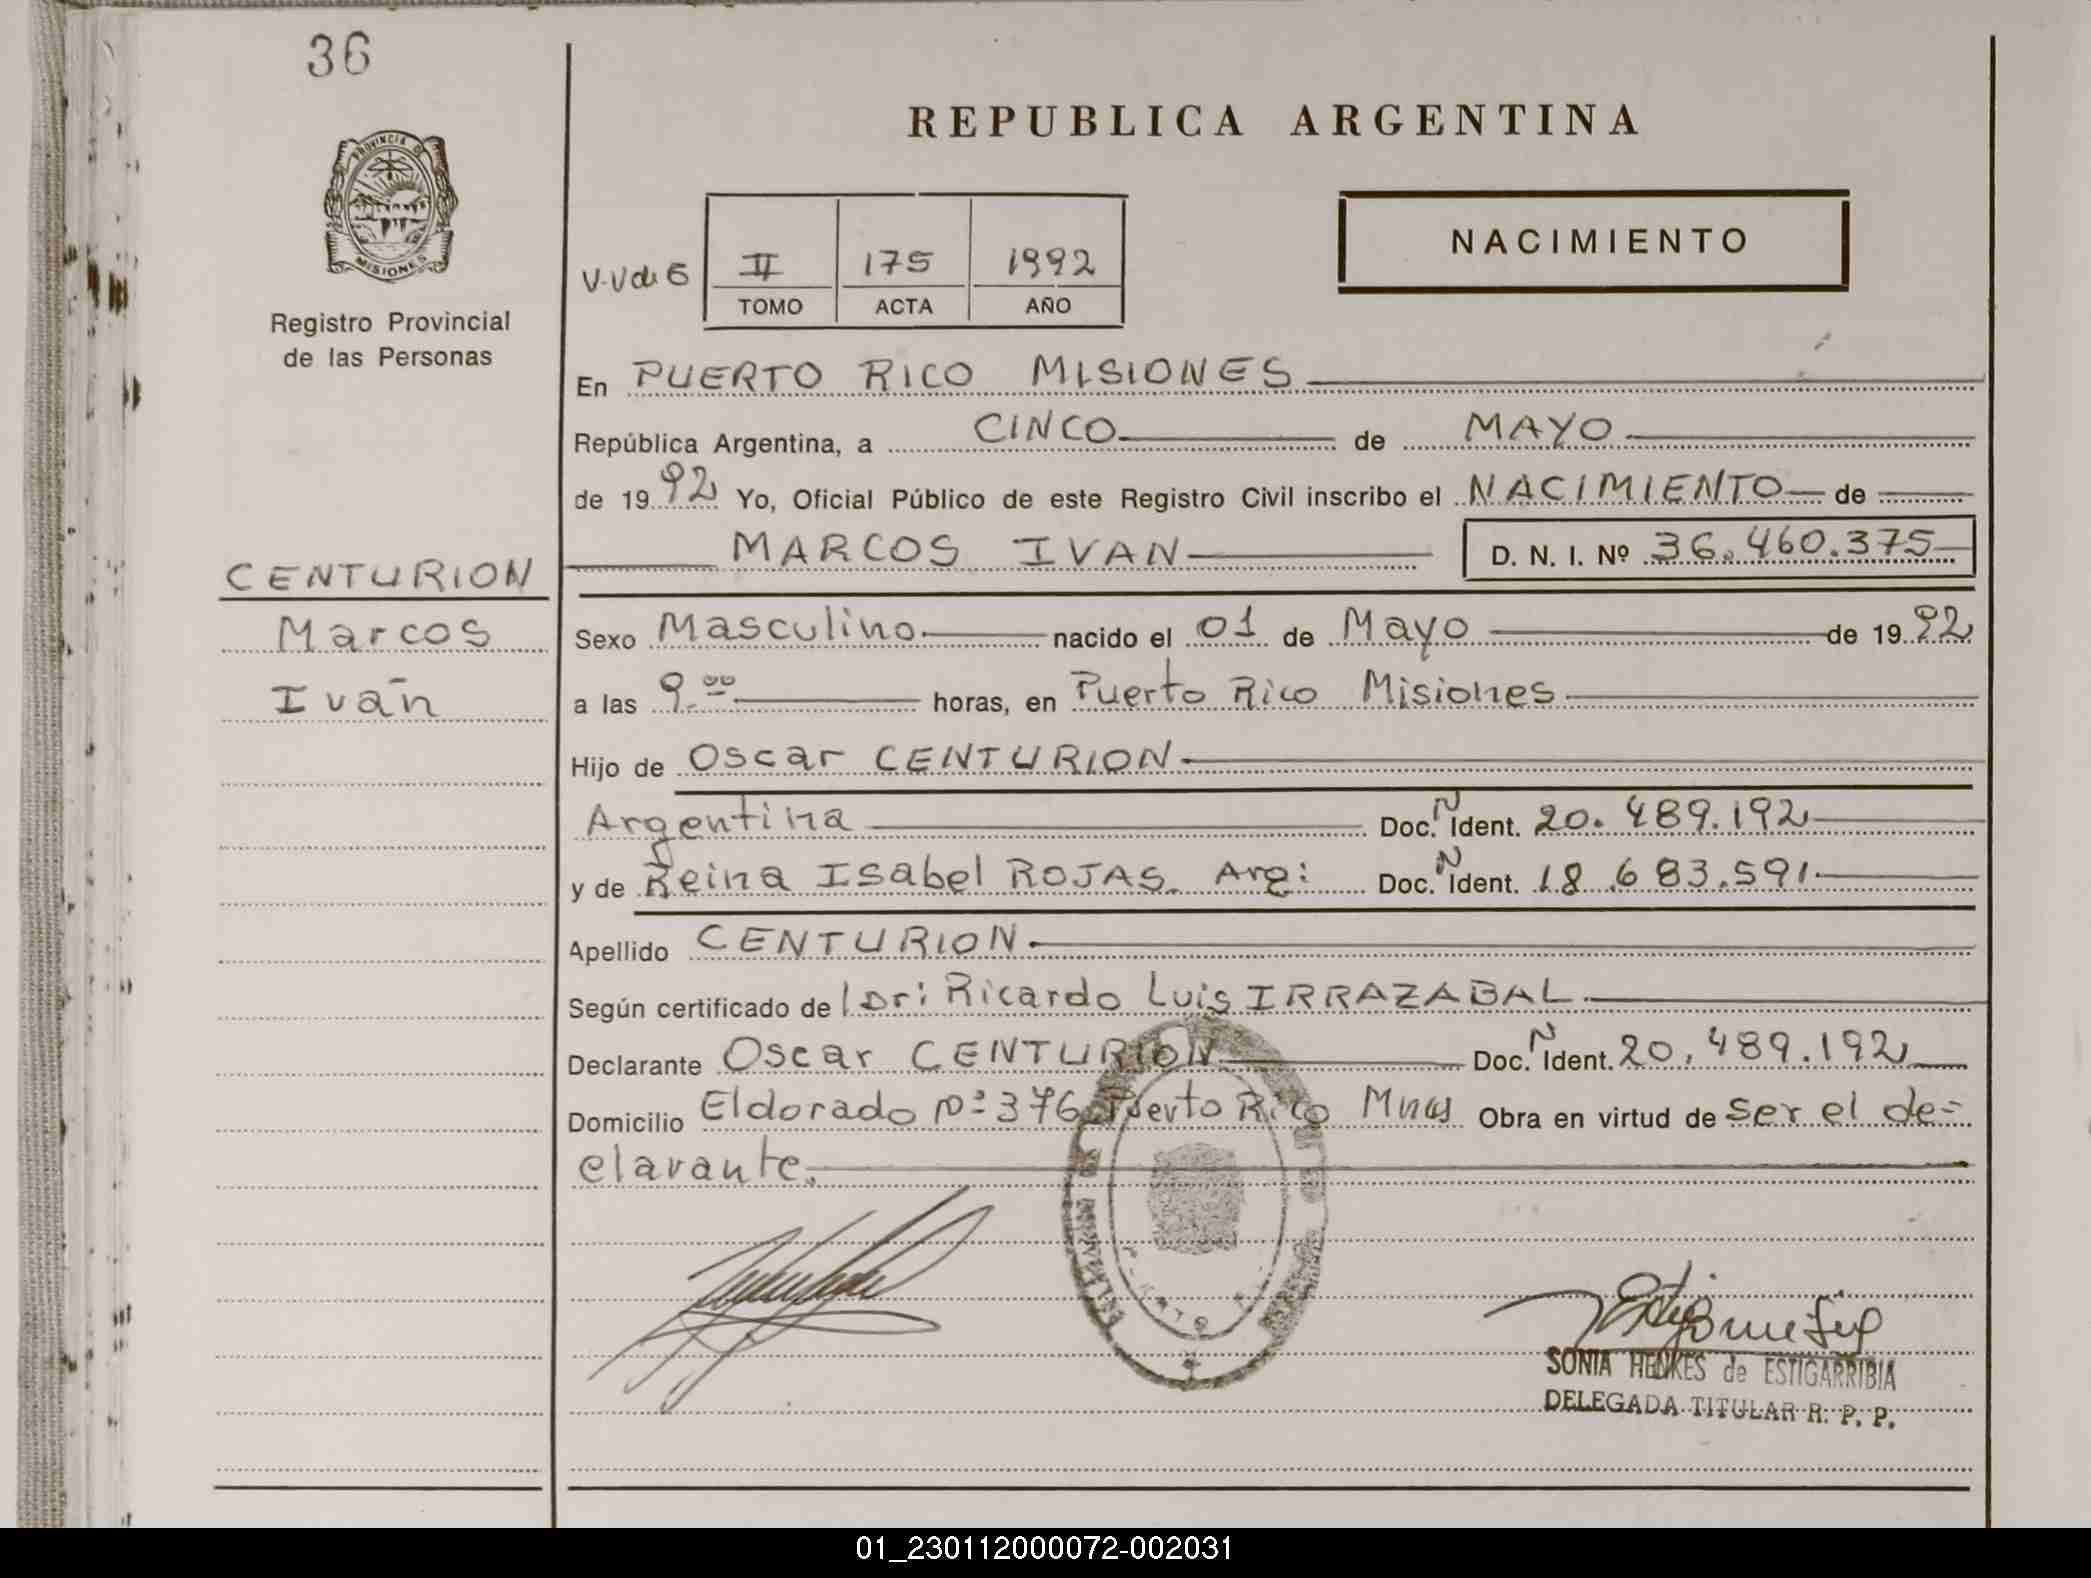 36
PROVINCIA D
MISIONES
Registro Provincial
de las Personas
REPUBLICA ARGENTINA
NACIMIENTO
II 175 1992
TOMO ACTA AÑO
En PUERTO RICO MISIONES
República Argentina, a CINCO de MAYO
de 1992 Yo, Oficial Público de este Registro Civil inscribo el NACIMIENTO de
MARCOS IVAN D. N. I. Nº 36.460.375
CENTURION
Marcos
Iván
Sexo Masculino nacido el 01 de Mayo de 1992
a las 9.00 horas, en Puerto Rico Misiones
Hijo de Oscar CENTURION
Argentina Doc. N Ident. 20.489.192
y de Reina Isabel ROJAS. Arg: Doc. N Ident. 18.683.591
Apellido CENTURION
Según certificado de l Dr: Ricardo Luis IRRAZABAL
Declarante Oscar CENTURION Doc. N Ident. 20.489.192
Domicilio Eldorado Nº 376 Puerto Rico Mnes Obra en virtud de ser el de-
clarante.
SONIA HENKES de ESTIGARRIBIA
DELEGADA TITULAR R. P. P.
01_230112000072-002031